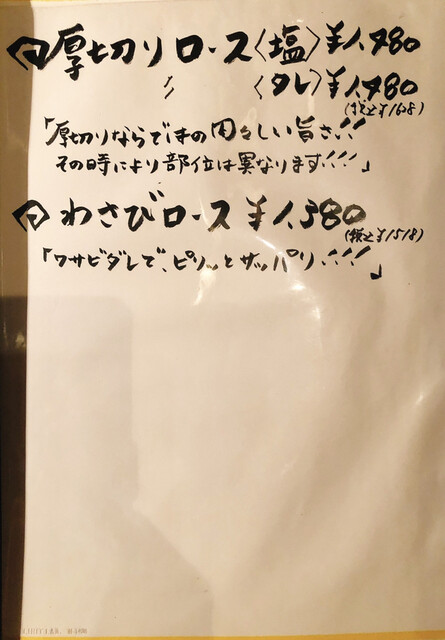 厚切りロース〈塩〉¥1,480
〃 〈タレ〉¥1,480
(税込¥1628)
「厚切りならではの肉々しい旨さ!!
その時により部位は異なります!!!」
わさびロース ¥1,380
(税込¥1518)
「ワサビダレで、ピリッとサッパリ!!!」